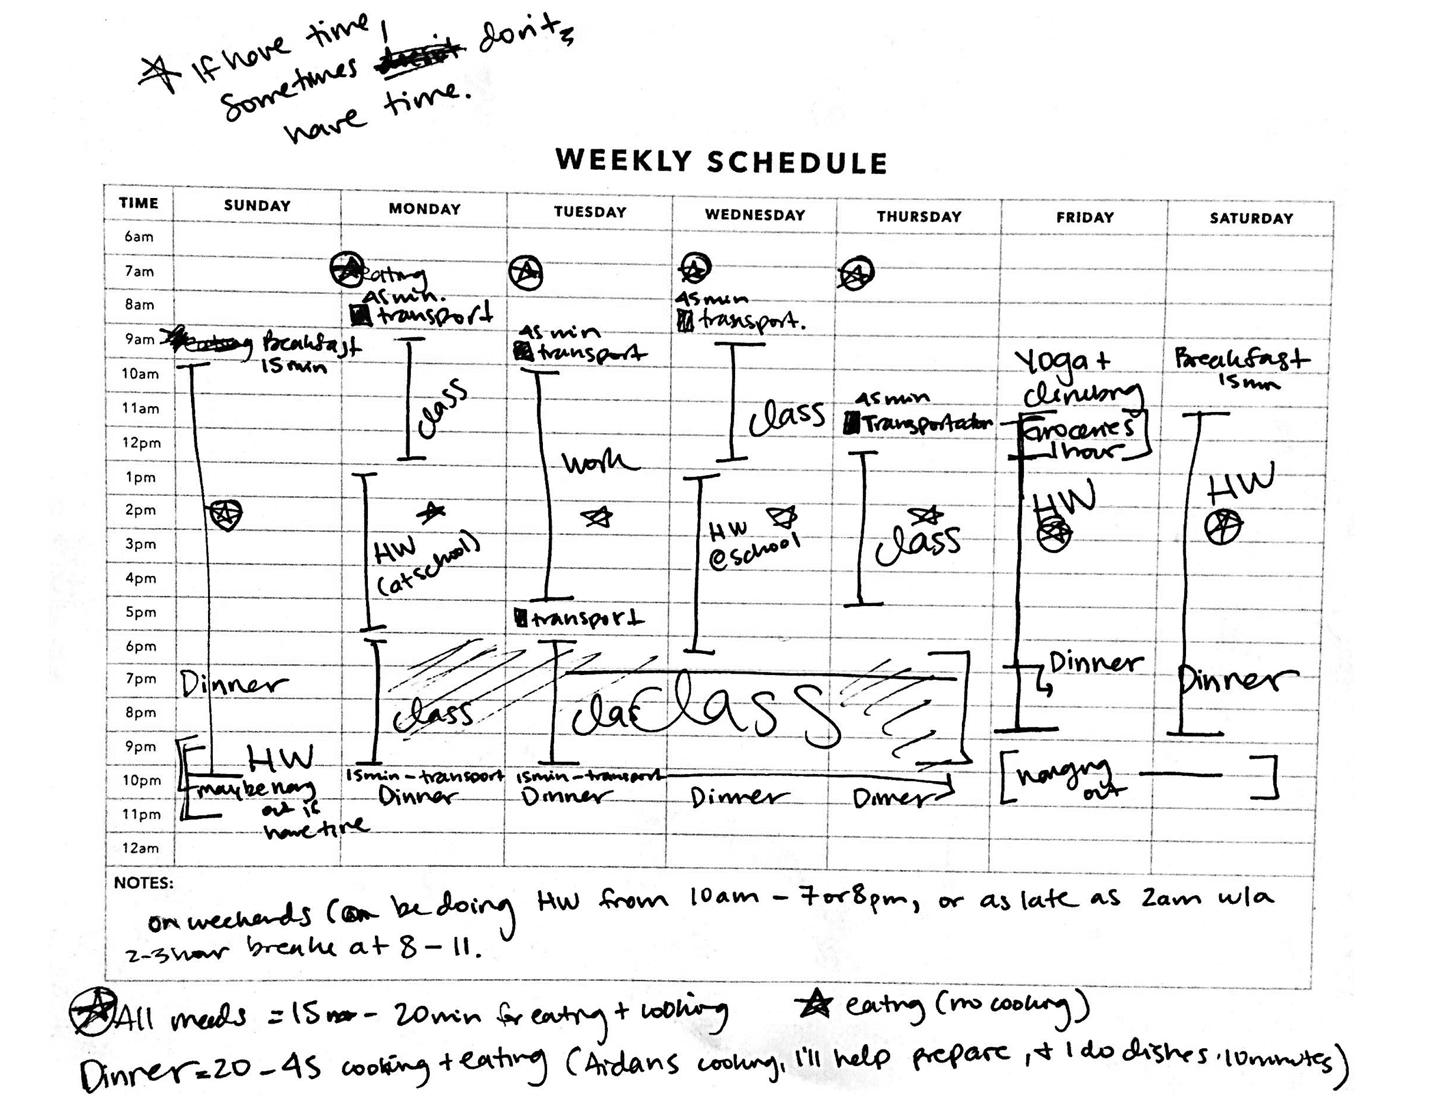 ☆ If have time,
sometimes don't
have time.
WEEKLY SCHEDULE
TIME SUNDAY MONDAY TUESDAY WEDNESDAY THURSDAY FRIDAY SATURDAY
6am
7am eating
8am 45 min. 45 min
transport transport.
9am Breakfast 45 min
15 min transport Yoga + Breakfast
10am climbing 15 min
11am class class 45 min
Transportation Groceries
12pm 1 hour
1pm work HW HW
2pm
3pm HW HW class
(at school) @school
4pm
5pm transport
6pm
7pm Dinner Dinner Dinner
8pm class class
9pm HW
10pm maybe hang 15min - transport 15min - transport hanging
out if Dinner Dinner Dinner Dinner out
11pm have time
12am
NOTES:
on weekends can be doing HW from 10am - 7 or 8pm, or as late as 2am w/a
2-3 hour breake at 8 - 11.
All meals = 15 - 20min for eating + cooking ☆ eating (no cooking)
Dinner = 20 - 45 cooking + eating (Aidans cooking, I'll help prepare, + I do dishes · 10 minutes)